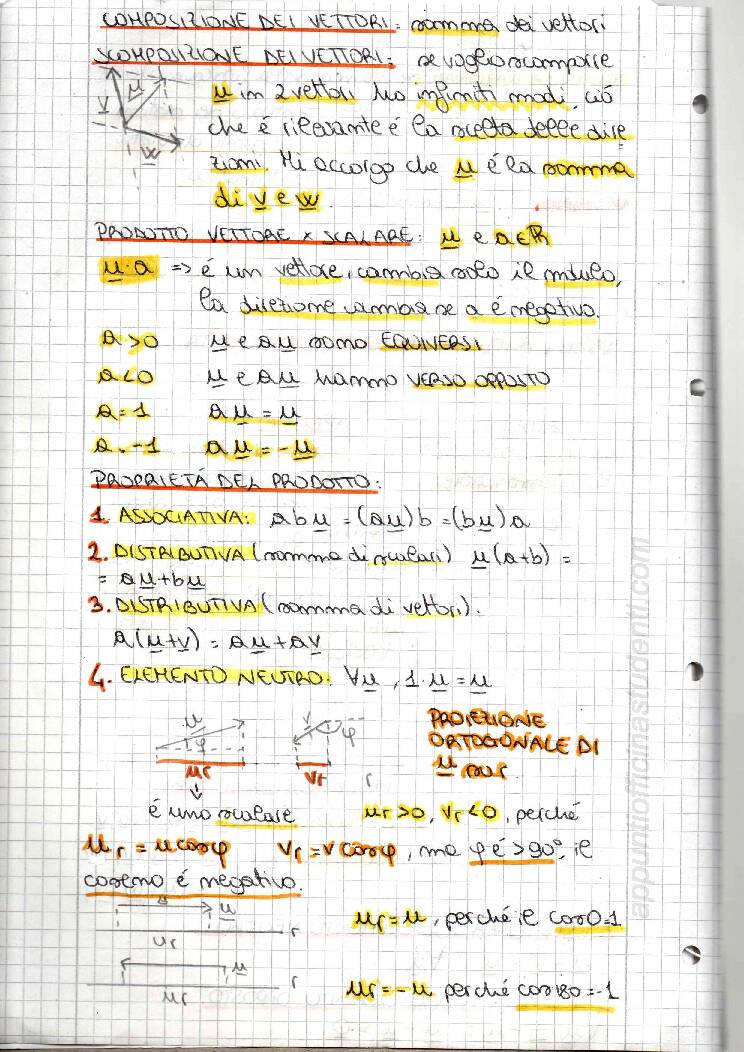 COMPOSIZIONE DEI VETTORI: somma dei vettori
SCOMPOSIZIONE DEI VETTORI: se voglio scomporre
u in 2 vettori ho infiniti modi, ciò
che é rilevante é la scelta delle dire
zioni. Mi accorgo che u é la somma
di v e w.
u
v
w
PRODOTTO VETTORE x SCALARE: u e a∈ℝ
u·a => é un vettore, cambia solo il modulo,
la direzione cambia se a é negativo.
a>0 u e au sono EQUIVERSI
a<0 u e au hanno VERSO OPPOSTO
a=1 au = u
a=-1 au = -u
PROPRIETÁ DEL PRODOTTO:
1. ASSOCIATIVA: abu = (au)b = (bu)a
2. DISTRIBUTIVA (somma di scalari) u(a+b) =
= au+bu
3. DISTRIBUTIVA (somma di vettori):
a(u+v) = au+av
4. ELEMENTO NEUTRO: ∀u, 1·u=u
u φ ur
v φ vr r
PROIEZIONE
ORTOGONALE DI
u su r
é uno scalare ur>0, vr<0, perché
ur = u cosφ vr = v cosφ, ma φ é >90°, il
coseno é negativo.
u ur r
ur=u, perché il cos0=1
u ur r
ur=-u perché cos180=-1
appuntiofficinastudenti.com